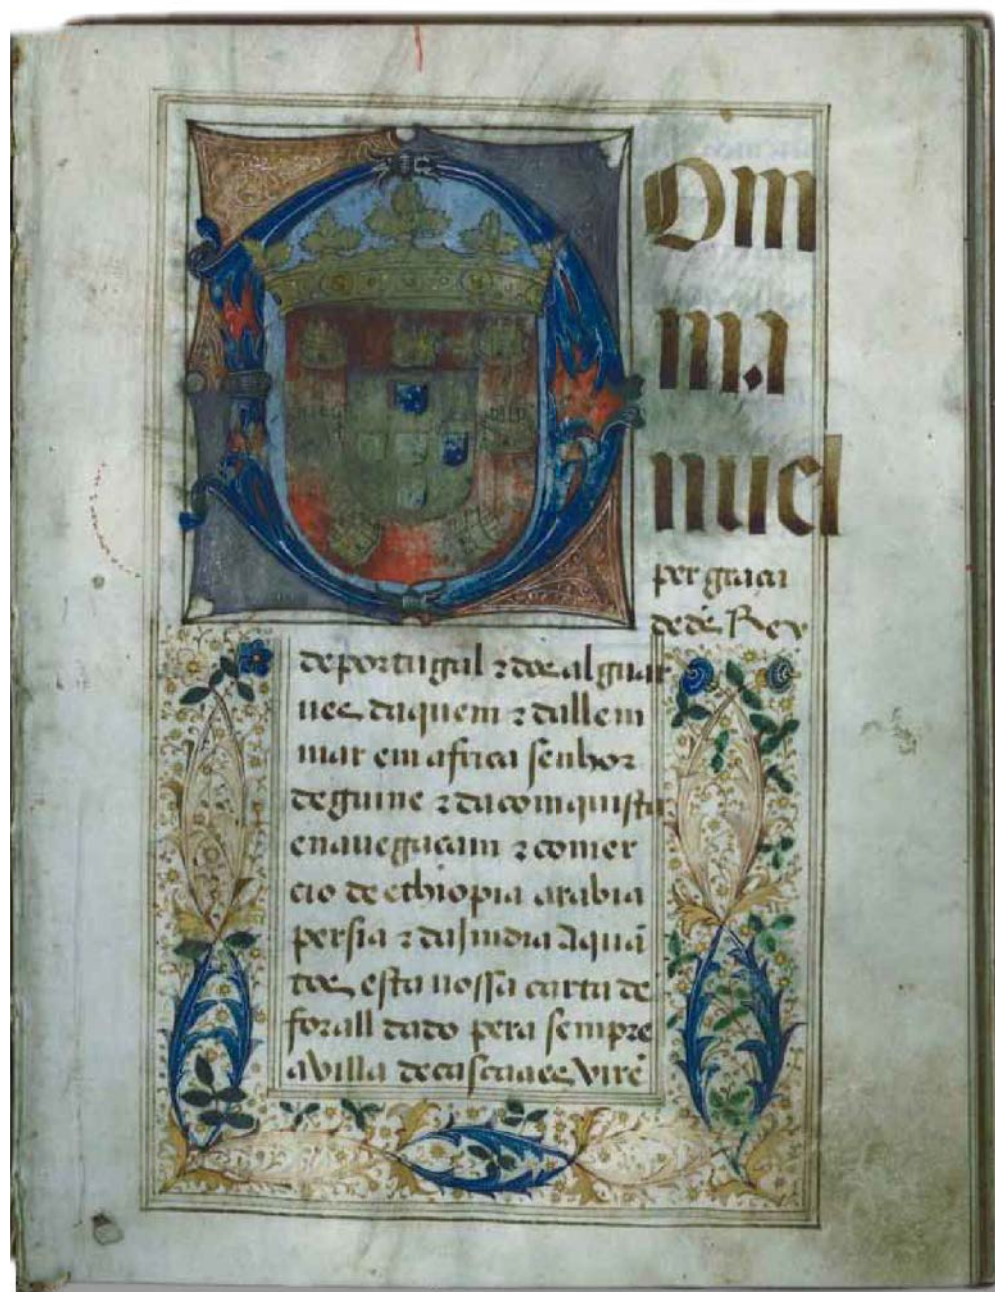 Dom
m.a
nuel
per graça
de dẽ Rey
de portugal ⁊ dos alguar
ues daquem ⁊ dallem
mar em africa senhor
de guine ⁊ da comquista
e nauegacam ⁊ comer
cio de ethiopia arabia
persia ⁊ da Jndia A quã
tos esta nossa carta de
forall dado pera sempre
a Villa de cascaaes Virẽ